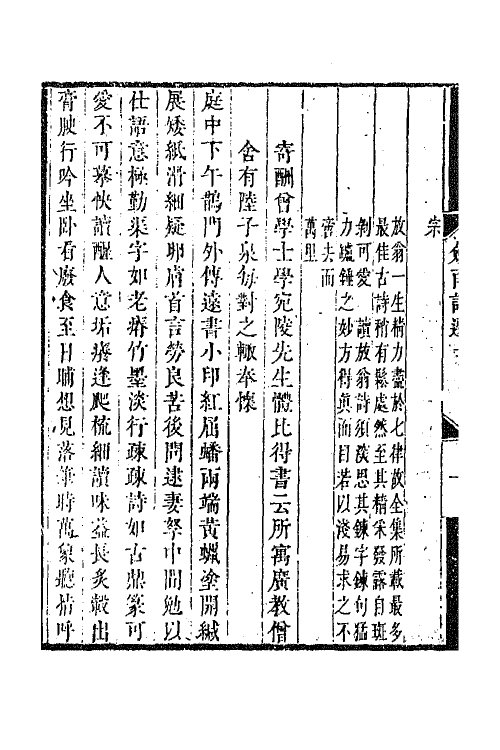 宗
放翁一生精力盡於七律故全集所載最多
最佳古詩稍有鬆處然至其精采發露自斑
剝可愛 讀放翁詩須深思其鍊字鍊句猛
力鑪錘之妙方得真面目若以淺易求之不
啻去而
萬里
寄酬曾學士學宛陵先生體比得書云所寓廣教僧
舍有陸子泉每對之輒奉懷
庭中下午鵲門外傳遠書小印紅屈蟠兩端黃蠟塗開緘
展矮紙滑細疑卵膚首言勞良苦後問逮妻孥中間勉以
仕語意極勤渠字如老瘠竹墨淡行疎疎詩如古鼎篆可
愛不可摹快讀醒人意垢癢逢爬梳細讀味益長炙轂出
膏腴行吟坐臥看廢食至日晡想見落筆時萬象聽指呼